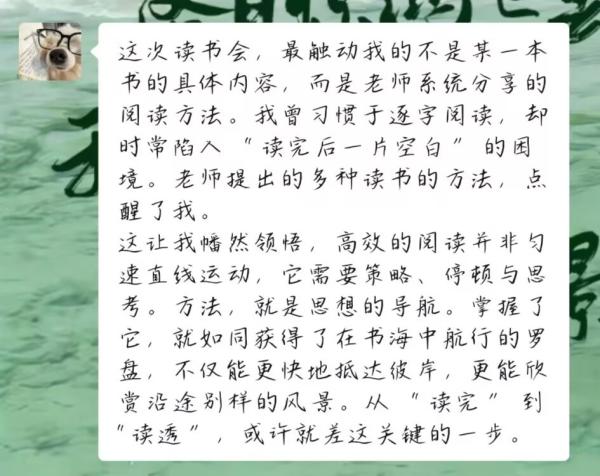 这次读书会，最触动我的不是某一本
书的具体内容，而是老师系统分享的
阅读方法。我曾习惯于逐字阅读，却
时常陷入“读完后一片空白”的困
境。老师提出的多种读书的方法，点
醒了我。
这让我幡然领悟，高效的阅读并非匀
速直线运动，它需要策略、停顿与思
考。方法，就是思想的导航。掌握了
它，就如同获得了在书海中航行的罗
盘，不仅能更快地抵达彼岸，更能欣
赏沿途别样的风景。从“读完”到
“读透”，或许就差这关键的一步。